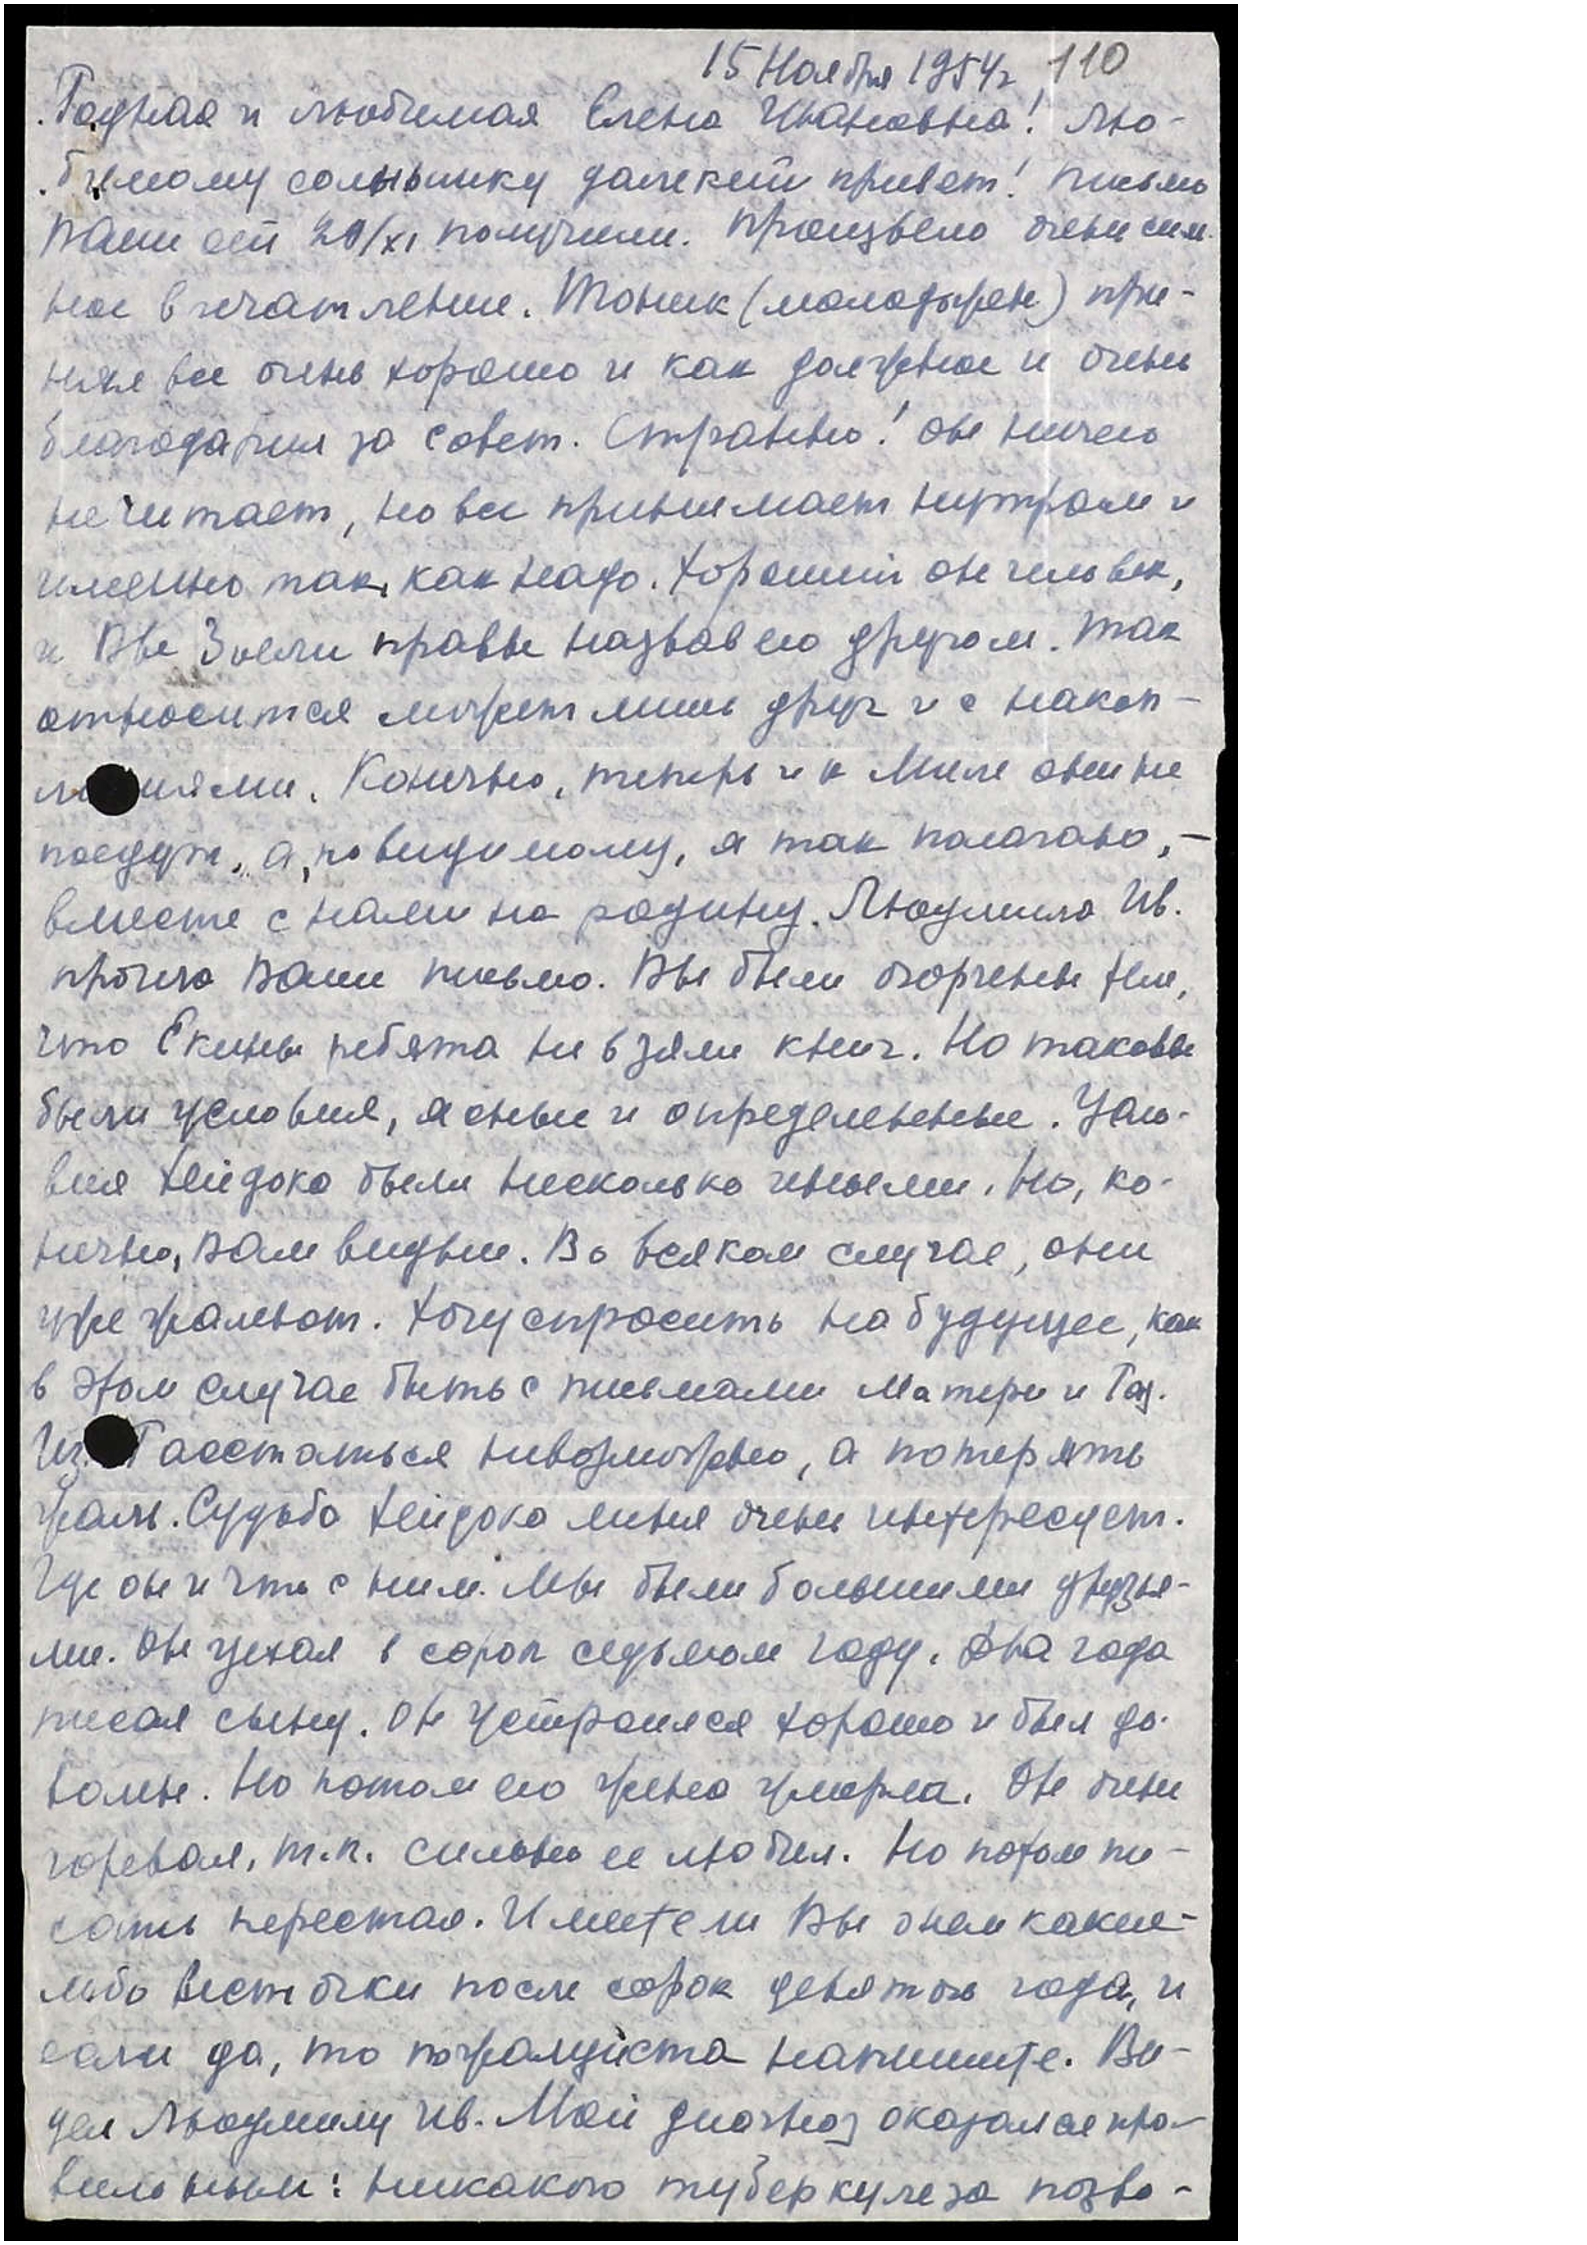 15 Ноября 1954г. 110
Родная и любимая Елена Ивановна! Лю-
бимому солнышку далекий привет! Письмо
Ваше от 20/XI получили. Произвело очень силь
ное впечатление. Тоник (молодожен) при-
нял все очень хорошо и как должное и очень
благодарил за совет. Странно! Он ничего
не читает, но все принимает нутром и
именно так, как надо. Хороший он человек,
и Вы правы назвав его другом. Так
относится может лишь друг и с накоп-
лениями. Конечно, теперь и к Миле они не
поедут, а, повидимому, я так полагаю, –
вместе с нами на родину. Людмила Ив.
прочла Ваше письмо. Вы были огорчены тем,
что Екины ребята не взяли книг. Но таковы
были условия, ясные и определенные. Усло-
вия Хейдока были несколько иными. Но, ко-
нечно, Вам виднее. Во всяком случае, они
уже жалеют. Хочу спросить на будущее, как
в этом случае быть с письмами Матери и Гам.
Из. Расстаться невозможно, а потерять
жаль. Судьба Хейдока меня очень интересует.
Где он и что с ним. Мы были большими друзья-
ми. Он уехал в сорок седьмом году. Два года
писал сыну. Он устроился хорошо и был до-
волен. Но потом его жена умерла. Он очень
горевал, т.к. сильно ее любил. Но потом пи-
сать перестал. Имеете ли Вы о нем какие-
либо весточки после сорок девятого года, и
если да, то пожалуйста напишите. Ви-
дел Людмилу Ив. Мой диагноз оказался пра-
вильным: никакого туберкулеза позво-